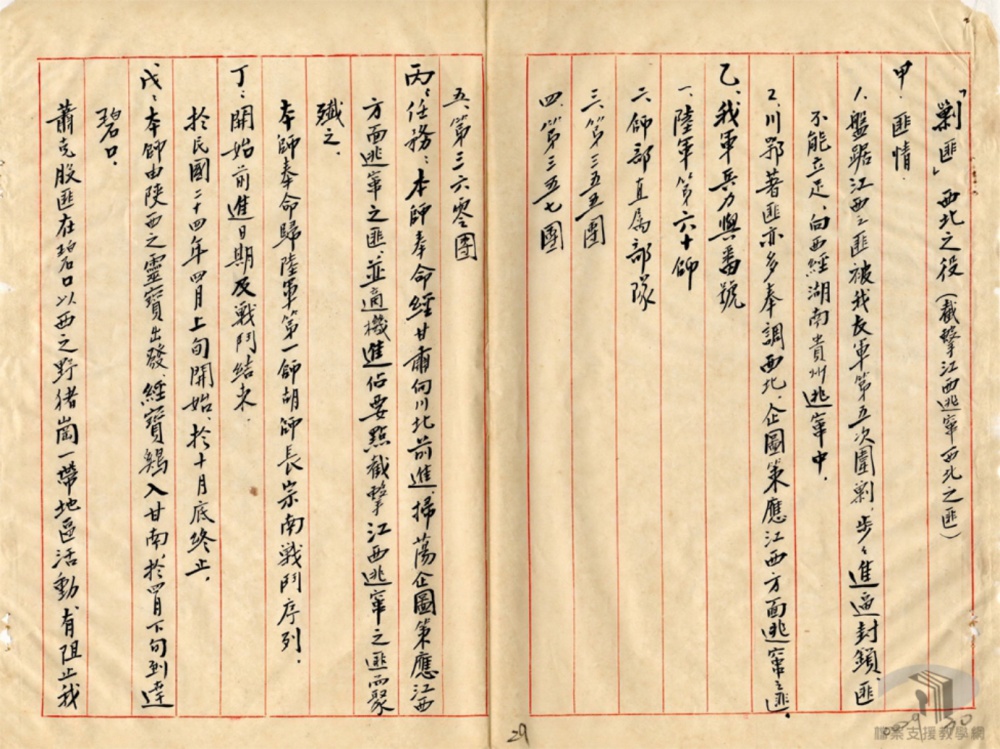 「剿匪」西北之役(截擊江西逃竄西北之匪)
甲、匪情.
1、盤踞江西之匪被我友軍第五次圍剿,步々進逼封鎖,匪
不能立足,向西經湖南貴州逃竄中.
2、川鄂著匪亦多奉調西北,企圖策應江西方面逃竄之匪.
乙、我軍兵力與番號
一、陸軍第六十師
二、師部直屬部隊
三、第三五五團
四、第三五七團
五、第三六零團
丙、任務:本師奉命經甘肅向川北前進,掃蕩企圖策應江西
方面逃竄之匪,並適機進佔要點截擊江西逃竄之匪而聚
殲之.
本師奉命歸陸軍第一師胡師長宗南戰鬥序列.
丁:開始前進日期及戰鬥結束.
於民國二十四年四月上旬開始,於十月底終止.
戊:本師由陝西之靈寶出發,經寶鷄入甘南,於四月下旬到達
碧口.
蕭克股匪在碧口以西之野猪崗一帶地區活動,有阻止我
29
檔案支援教學網